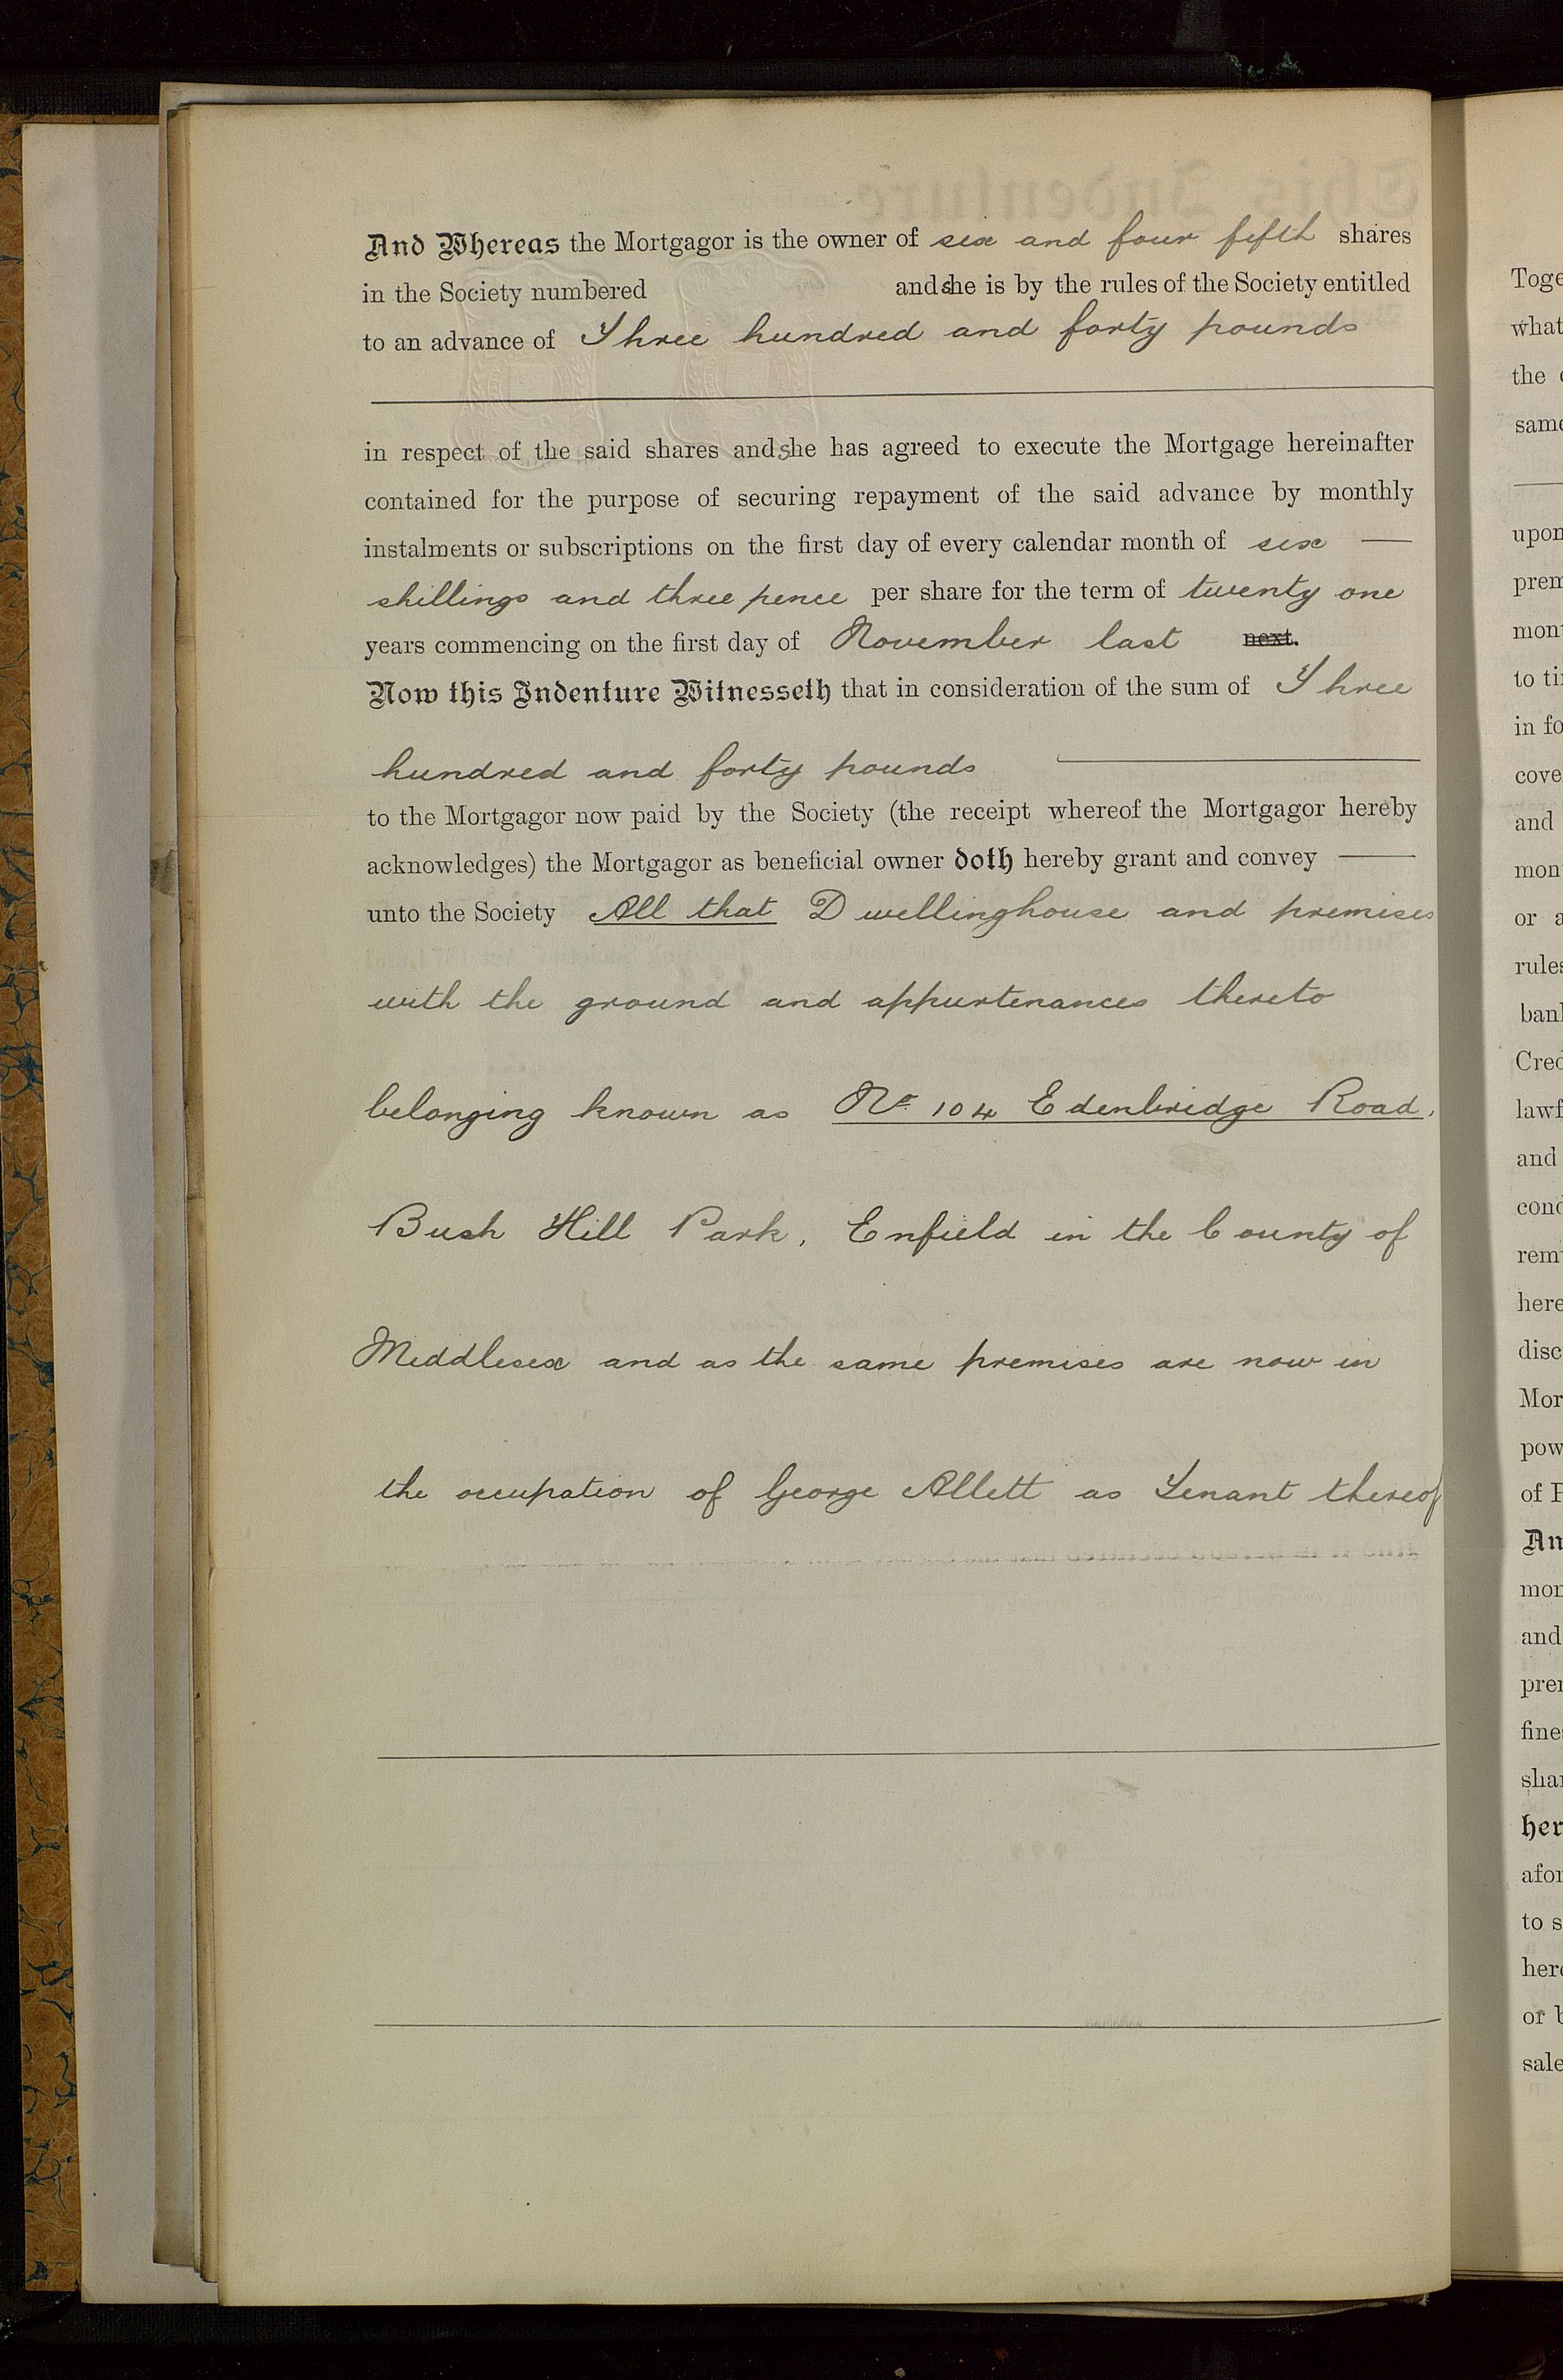 And Whereas the Mortgagor is the owner of six and four fifth shares
in the Society numbered and she is by the rules of the Society entitled
to an advance of Three hundred and forty pounds
in respect of the said shares and she has agreed to execute the Mortgage hereinafter
contained for the purpose of securing repayment of the said advance by monthly
instalments or subscriptions on the first day of every calendar month of six —
shillings and three pence per share for the term of twenty one
years commencing on the first day of November last next.
Now this Indenture Witnesseth that in consideration of the sum of Three
hundred and forty pounds
to the Mortgagor now paid by the Society (the receipt whereof the Mortgagor hereby
acknowledges) the Mortgagor as beneficial owner doth hereby grant and convey —
unto the Society All that Dwellinghouse and premises
with the ground and appurtenances thereto
belonging known as No. 104 Edenbridge Road,
Bush Hill Park, Enfield in the County of
Middlesex and as the same premises are now in
the occupation of George Allett as Tenant thereof
Toge
what
the
same
upon
prem
mont
to ti
in fo
cove
and
mon
or a
rules
ban
Cred
lawf
and
cond
rem
here
disc
Mor
pow
of P
An
mon
and
prem
fine
shar
her
afor
to s
here
or b
sale